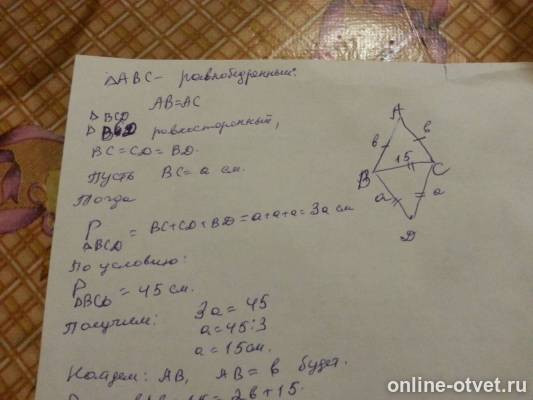 △ABC - равнобедренный.
AB=AC
△BCD
△ равносторонний,
BC=CD=BD.
Пусть BC=a см.
Тогда
P△BCD = BC+CD+BD=a+a+a=3a см
По условию:
P△BCD = 45 см.
Получим: 3a=45
a=45:3
a=15см.
Найдем: AB, AB=b будет.
=2b+15.
A
b b
15
B C
a a
D
online-otvet.ru